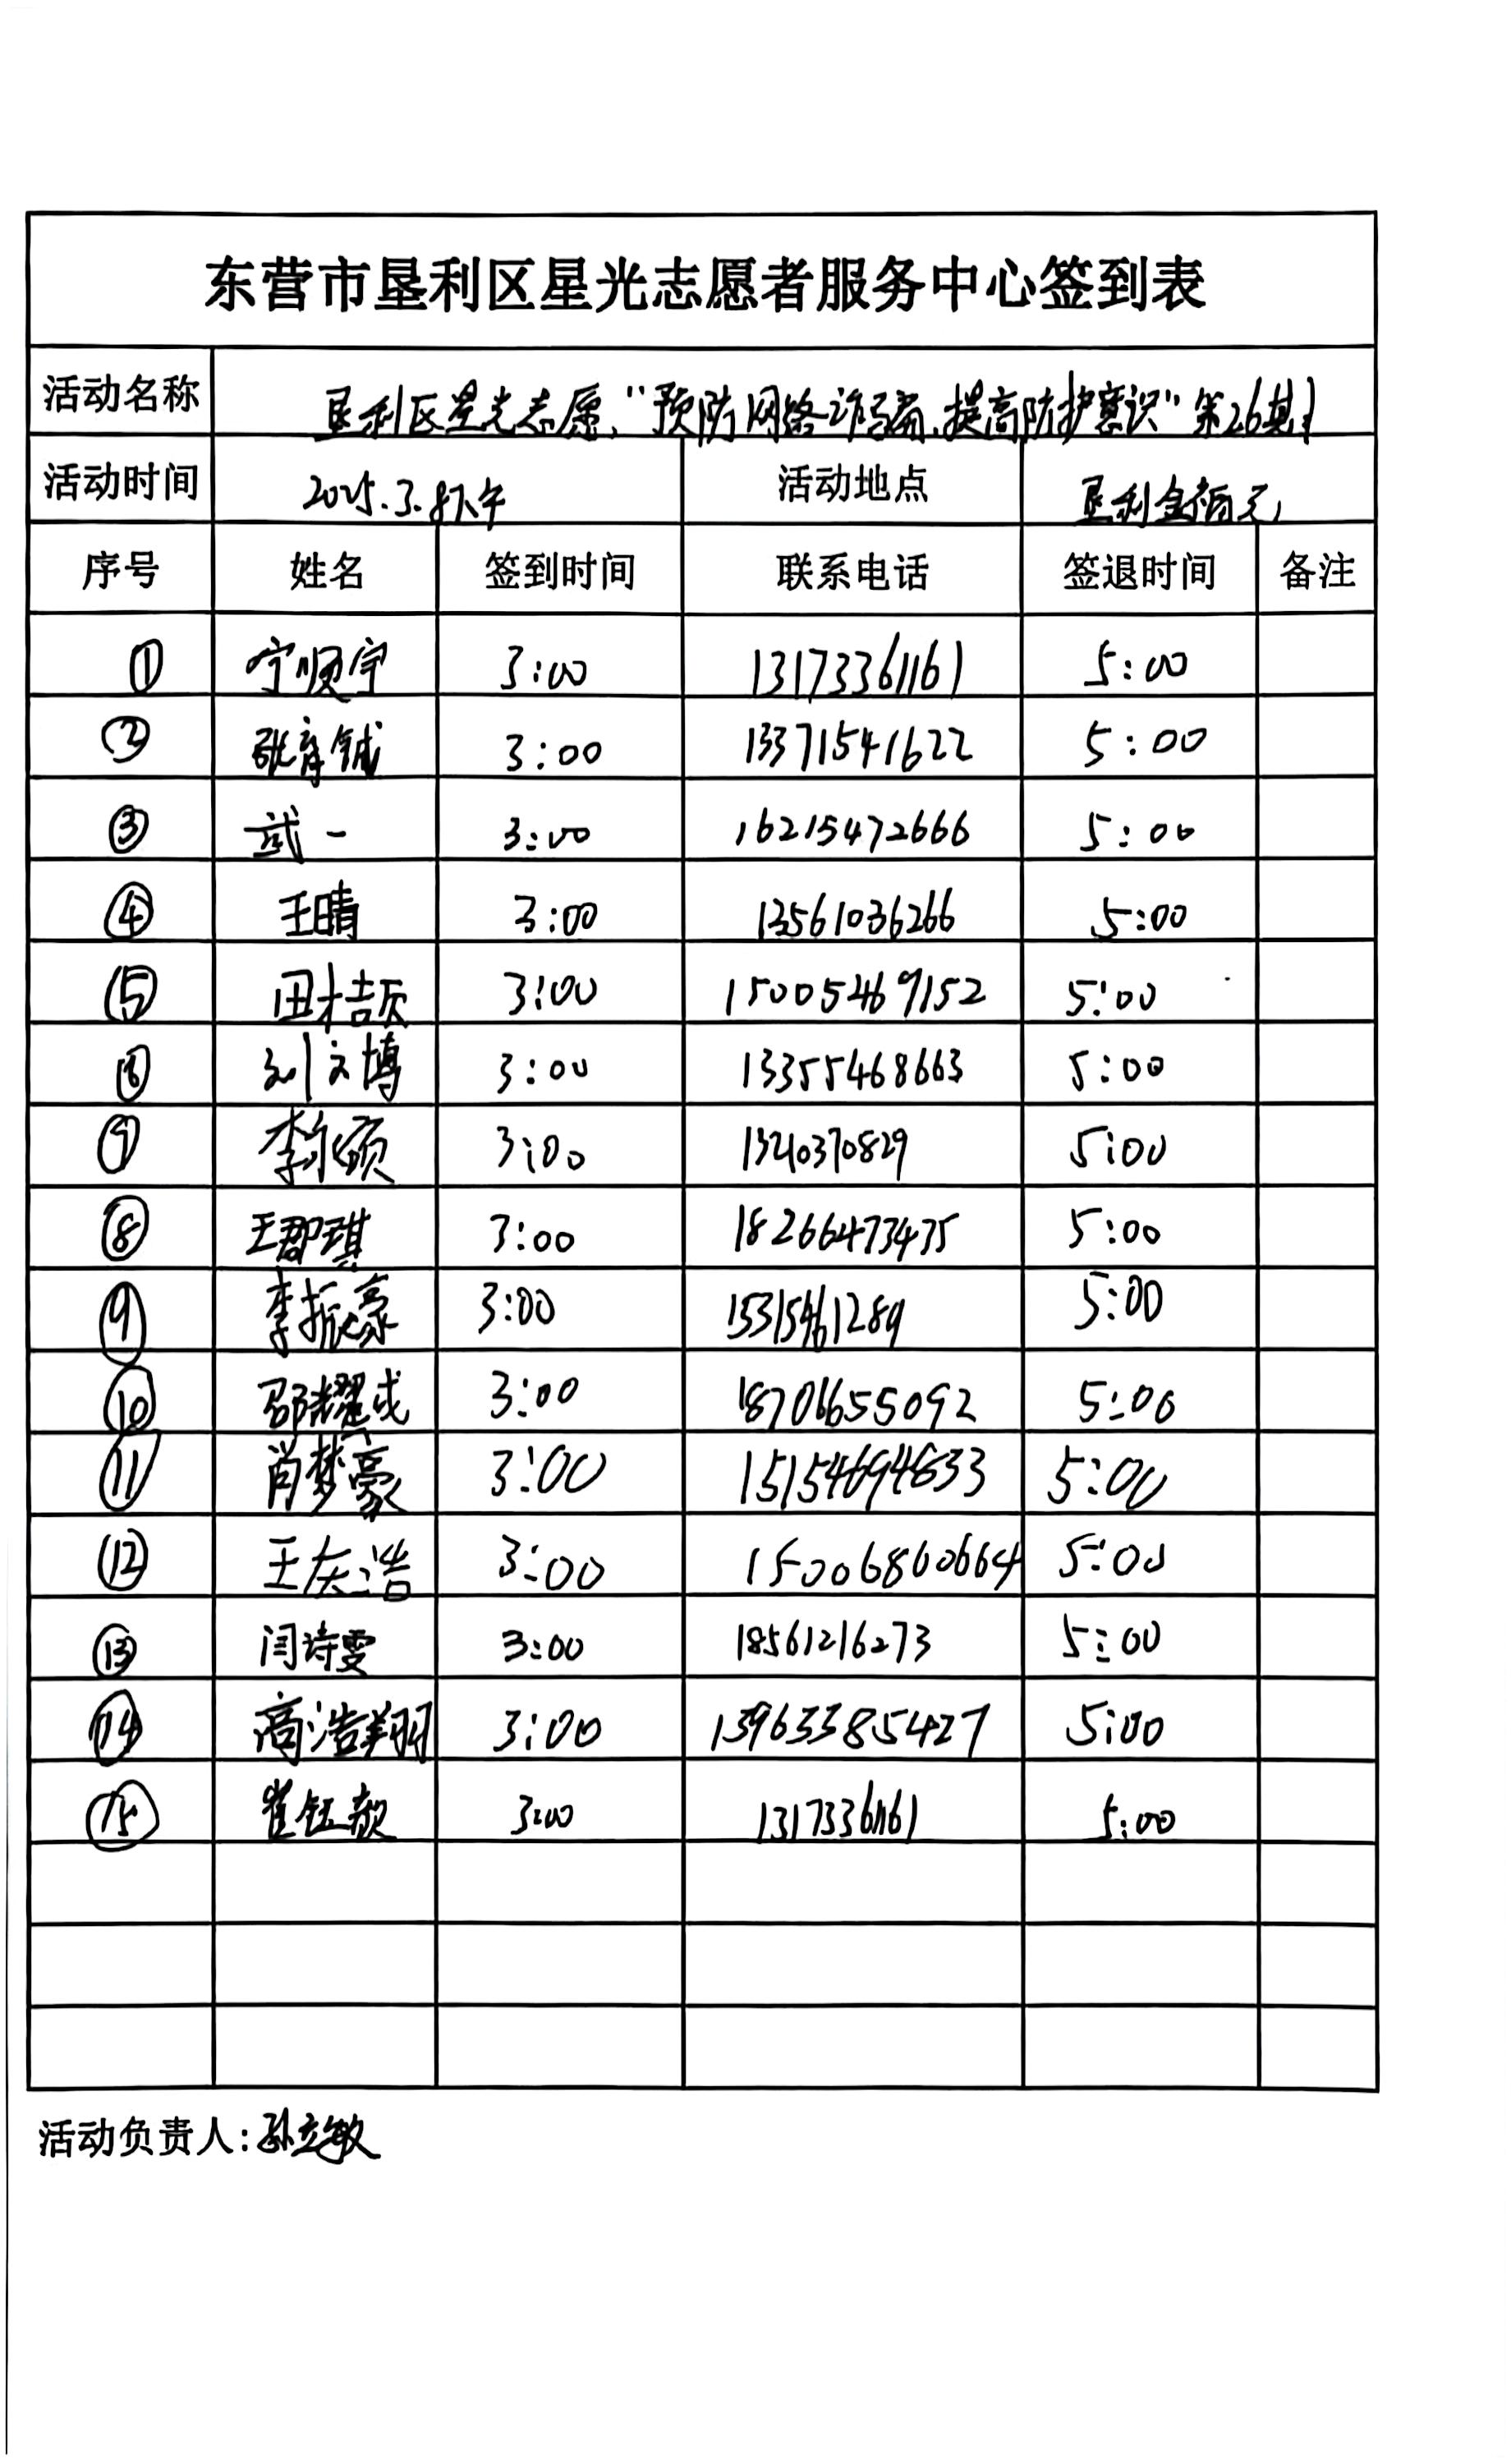 东营市垦利区星光志愿者服务中心签到表
活动名称 垦利区星光志愿，“预防网络诈骗，提高防护意识”第26期
活动时间 2025.3.8下午 活动地点 垦利金福元
序号 姓名 签到时间 联系电话 签退时间 备注
① 宁顺宇 3:00 13173361161 5:00
② 张育铖 3:00 13371541622 5:00
③ 武一 3:00 16215472666 5:00
④ 王晴 3:00 13561036266 5:00
⑤ 田桔 3:00 15005469152 5:00
⑥ 刘文博 3:00 13355468663 5:00
⑦ 李硕 3:00 1340370829 5:00
⑧ 王郡琪 3:00 18266473435 5:00
⑨ 李振豪 3:00 15315461289 5:00
⑩ 邵耀成 3:00 18706655092 5:00
⑪ 肖梦豪 3:00 15154694833 5:00
⑫ 王庆浩 3:00 15006860664 5:00
⑬ 闫诗雯 3:00 18561216273 5:00
⑭ 高浩翔 3:00 13963385427 5:00
⑮ 崔钰颜 3:00 13173361161 5:00
活动负责人：孙立敏